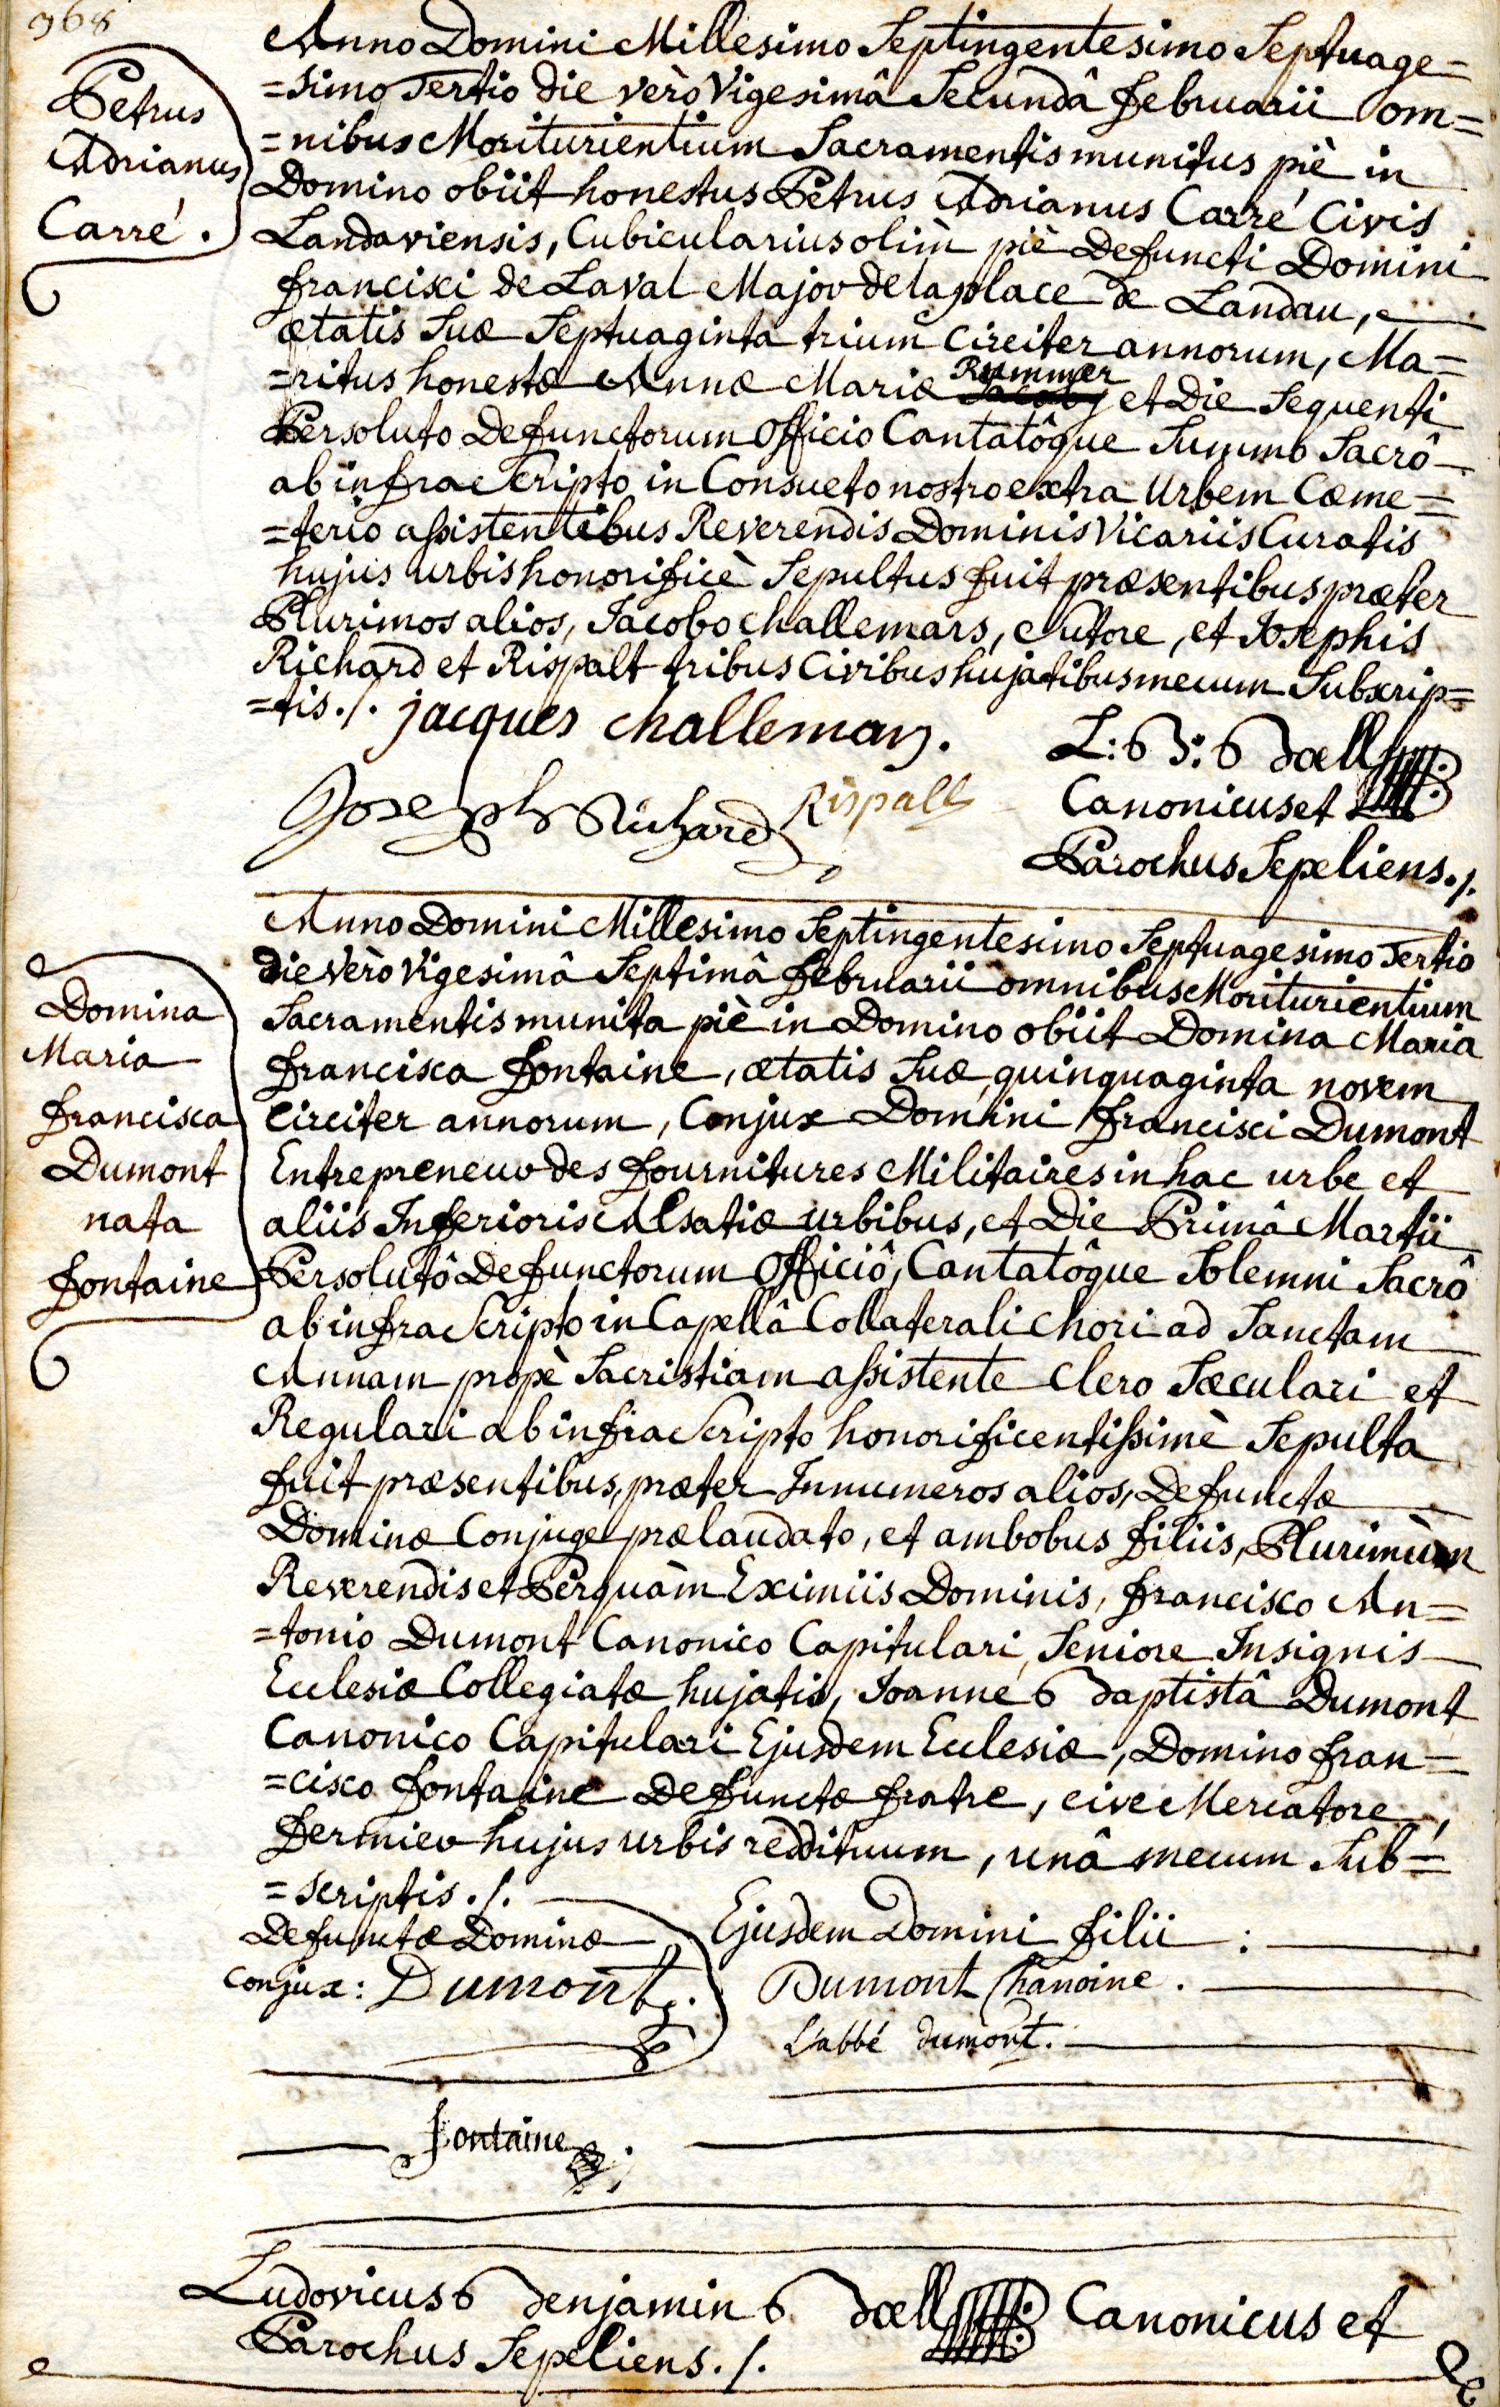 968
Petrus
Adrianus
Carré.
Anno Domini Millesimo Septingentesimo Septuage=
=simo Tertio die verò Vigesimâ Secundâ februarii om=
=nibus Moriturientium Sacramentis munitus piè in
Domino obiit honestus Petrus Adrianus Carré Civis
Landaviensis, Cubicularius olim piè Defuncti Domini
francisci de Laval Major de la place de Landau,
ætatis Suæ Septuaginta trium Circiter annorum, Ma=
=ritus honestæ Annæ Mariæ Rummer et Die Sequenti
Persoluto Defunctorum Officio Cantatôque Summo Sacrô
ab infra Scripto in Consueto nostro extra Urbem Cœme=
=terio assistentibus Reverendis Dominis Vicariis Curatis
hujus urbis honorificè Sepultus fuit præsentibus præter
Plurimos alios, Jacobo challemars, Sutore, et Josephis
Richard et Rispalt tribus Civibus hujatibus mecum Subscrip=
=tis./. jacques challemars.
L: B: Bœll
Joseph Richard Rispalt
Canonicus et
Parochus Sepeliens./.
Domina
Maria
francisca
Dumont
nata
fontaine
Anno Domini Millesimo Septingentesimo Septuagesimo Tertio
Die Verò Vigesimâ Septimâ februarii omnibus Moriturientium
Sacramentis munita piè in Domino obiit Domina Maria
francisca fontaine, ætatis Suæ quinquaginta novem
Circiter annorum, Conjux Domini francisci Dumont
Entrepreneur des fournitures Militaires in hac urbe et
aliis Inferioris Alsatiæ urbibus, et Die Primâ Martii
Persolutô Defunctorum Officiô, Cantatôque Solemni Sacrô
ab infra Scripto in Capellâ Collaterali Chori ad Sanctam
Annam propè Sacristiam assistente Clero Sæculari et
Regulari ab infra Scripto honorificentissimè Sepulta
fuit præsentibus, præter Innumeros alios, Defunctæ
Dominæ Conjuge prælaudato, et ambobus filiis, Plurimùm
Reverendis et Perquàm Eximiis Dominis, francisco An=
=tonio Dumont Canonico Capitulari, Seniore Insignis
Ecclesiæ Collegiatæ hujatis, Joanne Baptistâ Dumont
Canonico Capitulari Ejusdem Ecclesiæ, Domino fran=
=cisco fontaine Defunctæ fratre, cive Mercatore,
fermier hujus urbis reddituum, unâ mecum Sub=
=scriptis./.
Defunctæ Dominæ
Conjux: Dumont.
Ejusdem Domini filii :
Dumont Chanoine.
L'abbé dumont.
fontaine
Ludovicus Benjamin Bœll Canonicus et
Parochus Sepeliens./.